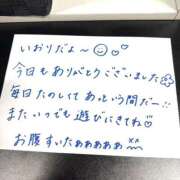 いおりだよ〜
今日もありがとうございました
毎日たのしくて あっという間だー!!
また いつでも 遊びにきてね
お腹すいたぁぁぁぁぁ